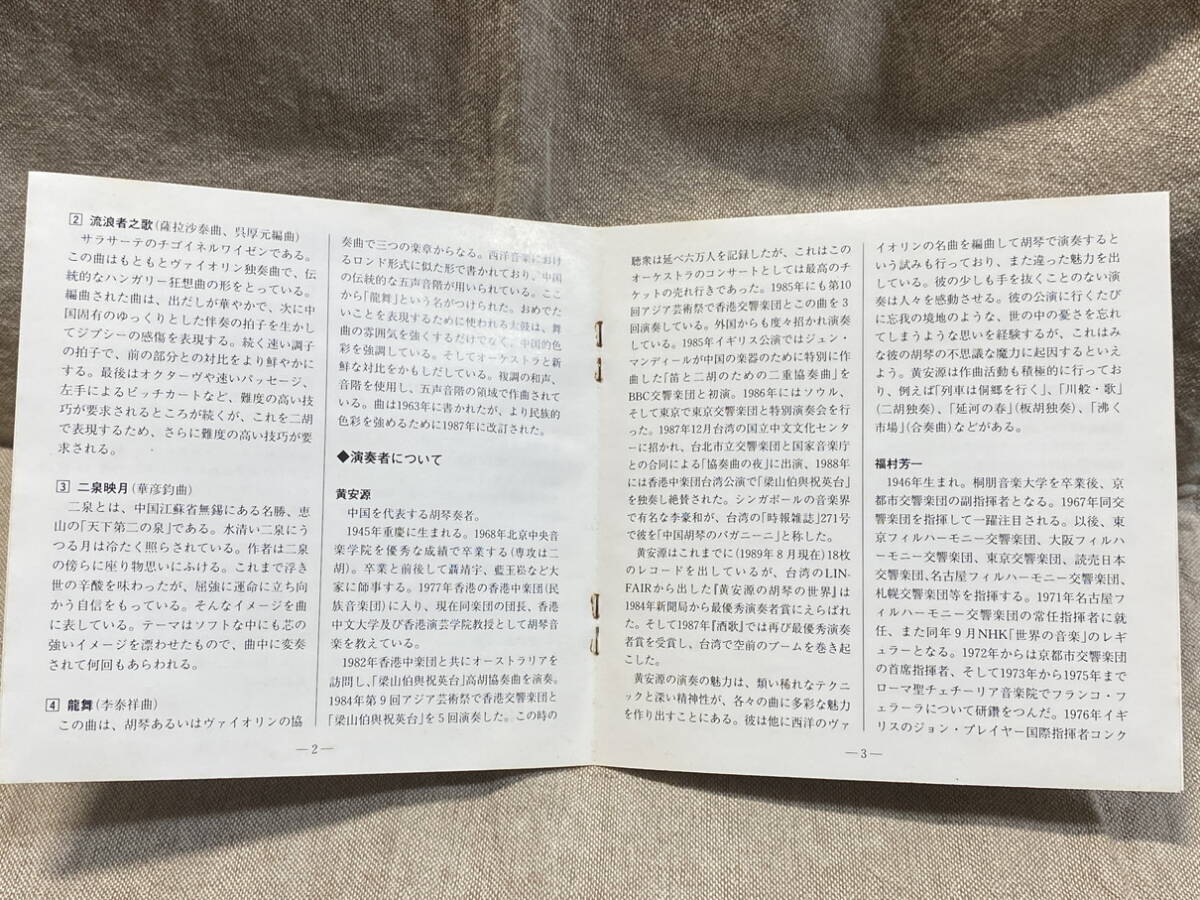 2 流浪者之歌(薩拉沙泰曲、呉厚元編曲)
サラサーテのチゴイネルワイゼンである。
この曲はもともとヴァイオリン独奏曲で、伝
統的なハンガリー狂想曲の形をとっている。
編曲された曲は、出だしが華やかで、次に中
国固有のゆっくりとした伴奏の拍子を生かし
てジプシーの感傷を表現する。続く速い調子
の拍子で、前の部分との対比をより鮮やかに
する。最後はオクターヴや速いパッセージ、
左手によるピッチカートなど、難度の高い技
巧が要求されるところが続くが、これを二胡
で表現するため、さらに難度の高い技巧が要
求される。
3 二泉映月(華彦鈞曲)
二泉とは、中国江蘇省無錫にある名勝、恵
山の「天下第二の泉」である。水清い二泉にう
つる月は冷たく照らされている。作者は二泉
の傍らに座り物思いにふける。これまで浮き
世の辛酸を味わったが、屈強に運命に立ち向
かう自信をもっている。そんなイメージを曲
に表している。テーマはソフトな中にも芯の
強いイメージを漂わせたもので、曲中に変奏
されて何回もあらわれる。
4 龍舞(李泰祥曲)
この曲は、胡琴あるいはヴァイオリンの協
奏曲で三つの楽章からなる。西洋音楽におけ
るロンド形式に似た形で書かれており、中国
の伝統的な五声音階が用いられている。ここ
から「龍舞」という名がつけられた。おめでた
いことを表現するために使われる太鼓は、舞
曲の雰囲気を強くするだけでなく、中国的色
彩を強調している。そしてオーケストラと新
鮮な対比をかもしだしている。複調の和声、
音階を使用し、五声音階の領域で作曲されて
いる。曲は1963年に書かれたが、より民族的
色彩を強めるために1987年に改訂された。
◆演奏者について
黄安源
中国を代表する胡琴奏者。
1945年重慶に生まれる。1968年北京中央音
楽学院を優秀な成績で卒業する(専攻は二
胡)。卒業と前後して聶靖宇、藍玉崧など大
家に師事する。1977年香港の香港中楽団(民
族音楽団)に入り、現在同楽団の団長、香港
中文大学及び香港演芸学院教授として胡琴音
楽を教えている。
1982年香港中楽団と共にオーストラリアを
訪問し、「梁山伯與祝英台」高胡協奏曲を演奏。
1984年第9回アジア芸術祭で香港交響楽団と
「梁山伯與祝英台」を5回演奏した。この時の
—2—
聴衆は延べ六万人を記録したが、これはこの
オーケストラのコンサートとしては最高のチ
ケットの売れ行きであった。1985年にも第10
回アジア芸術祭で香港交響楽団とこの曲を3
回演奏している。外国からも度々招かれ演奏
している。1985年イギリス公演ではジュン・
マンディールが中国の楽器のために特別に作
曲した「笛と二胡のための二重協奏曲」を
BBC交響楽団と初演。1986年にはソウル、
そして東京で東京交響楽団と特別演奏会を行
った。1987年12月台湾の国立中文文化センタ
ーに招かれ、台北市立交響楽団と国家音楽庁
との合同による「協奏曲の夜」に出演、1988年
には香港中楽団台湾公演で「梁山伯與祝英台」
を独奏し絶賛された。シンガポールの音楽界
で有名な李豪和が、台湾の「時報雑誌」271号
で彼を「中国胡琴のパガニーニ」と称した。
黄安源はこれまでに(1989年8月現在)18枚
のレコードを出しているが、台湾のLIN-
FAIRから出した『黄安源の胡琴の世界』は
1984年新聞局から最優秀演奏者賞にえらばれ
た。そして1987年『酒歌』では再び最優秀演奏
者賞を受賞し、台湾で空前のブームを巻き起
こした。
黄安源の演奏の魅力は、類い稀れなテクニ
ックと深い精神性が、各々の曲に多彩な魅力
を作り出すことにある。彼は他に西洋のヴァ
イオリンの名曲を編曲して胡琴で演奏すると
いう試みも行っており、また違った魅力を出
している。彼の少しも手を抜くことのない演
奏は人々を感動させる。彼の公演に行くたび
に忘我の境地のような、世の中の憂さを忘れ
てしまうような思いを経験するが、これはみ
な彼の胡琴の不思議な魔力に起因するといえ
よう。黄安源は作曲活動も積極的に行ってお
り、例えば「列車は侗郷を行く」、「川舩・歌」
(二胡独奏)、「延河の春」(板胡独奏)、「沸く
市場」(合奏曲)などがある。
福村芳一
1946年生まれ。桐朋音楽大学を卒業後、京
都市交響楽団の副指揮者となる。1967年同交
響楽団を指揮して一躍注目される。以後、東
京フィルハーモニー交響楽団、大阪フィルハ
ーモニー交響楽団、東京交響楽団、読売日本
交響楽団、名古屋フィルハーモニー交響楽団、
札幌交響楽団等を指揮する。1971年名古屋フ
ィルハーモニー交響楽団の常任指揮者に就
任、また同年9月NHK「世界の音楽」のレギ
ュラーとなる。1972年からは京都市交響楽団
の首席指揮者、そして1973年から1975年まで
ローマ聖チェチーリア音楽院でフランコ・フ
ェラーラについて研鑽をつんだ。1976年イギ
リスのジョン・プレイヤー国際指揮者コンク
—3—